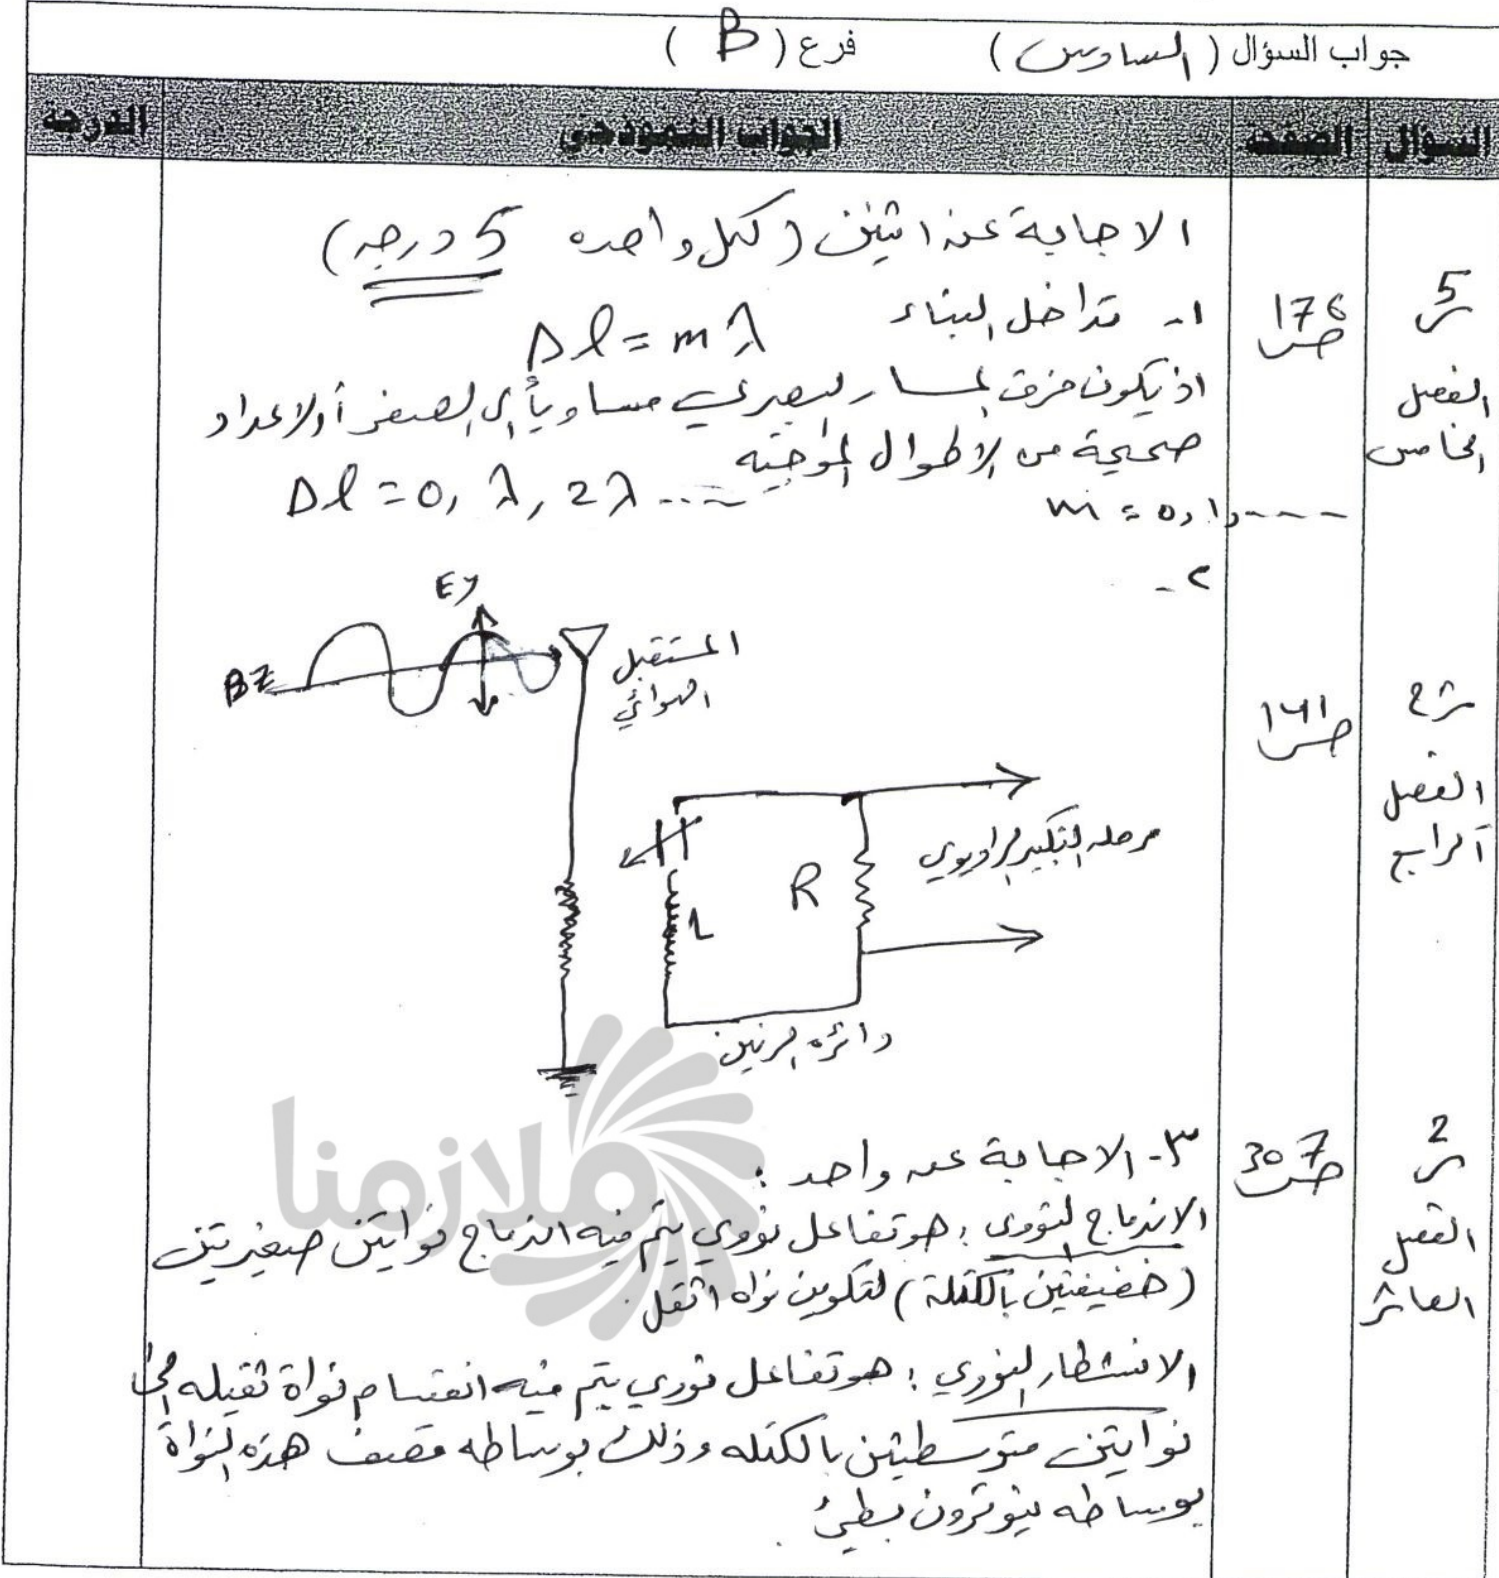 جواب السؤال ( السادس ) فرع ( B )
السؤال الصفحة الجواب النموذجي الدرجة
الاجابة عن اثنين ( لكل واحده 5 درجه )
س5 ص176 ١- تداخل البناء Δl = mλ
الفصل الخامس
اذ يكون فرق المسار البصري مساوياً الى الصفر أو لاعداد
صحيحة من الاطوال الموجيه
Δl = 0, λ, 2λ ----
m = 0, 1, ----
٢-
ص١٦١
الفصل الرابع
Ey
Bz
المستقبل
الهوائي
مرحله التكبير الراديوي
R
L
دائره الرنين
س2 ص307 ٣- الاجابة عن واحد :
الفصل العاشر
الاندماج النووي : هو تفاعل نووي يتم فيه اندماج نواتين صغيرتين
( خفيفتين بالكتلة ) لتكوين نواه اثقل .
الانشطار النووي : هو تفاعل نووي يتم فيه انقسام نواة ثقيله الى
نواتين متوسطتين بالكتله وذلك بوساطه قصف هذه النواة
بوساطه نيوترون بطيئ .
ملازمنا